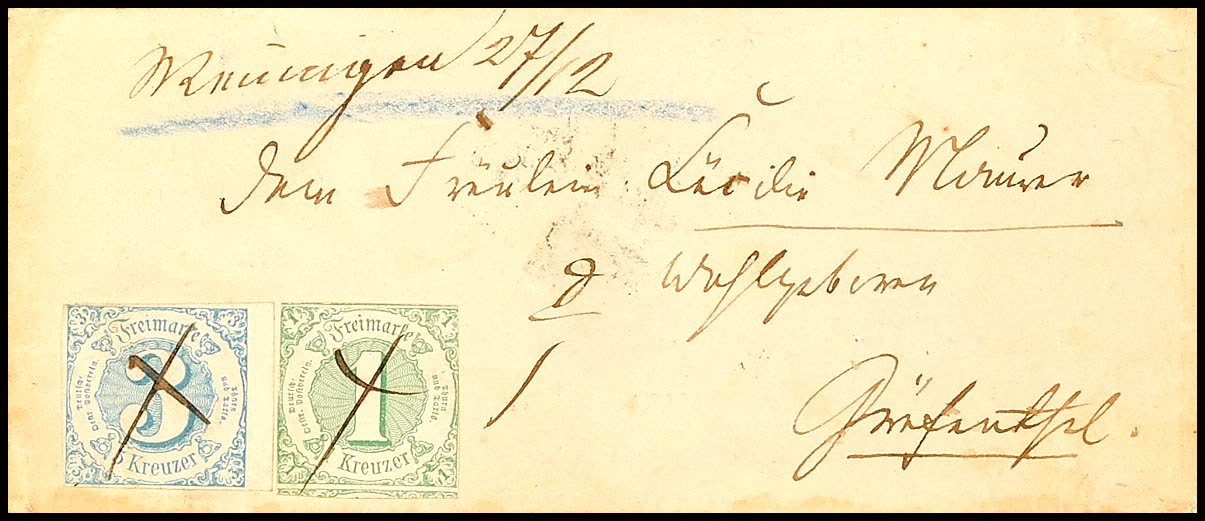 Meiningen 27/12
Dem Fräulein Cäcilie Maurer
Wohlgeboren
Gräfenthal.
Freimarke
Deutsch-Oestr. Postverein.
Thurn und Taxis.
3
3 Kreuzer
Freimarke
Deutsch-Oestr. Postverein.
Thurn und Taxis.
1
1 Kreuzer